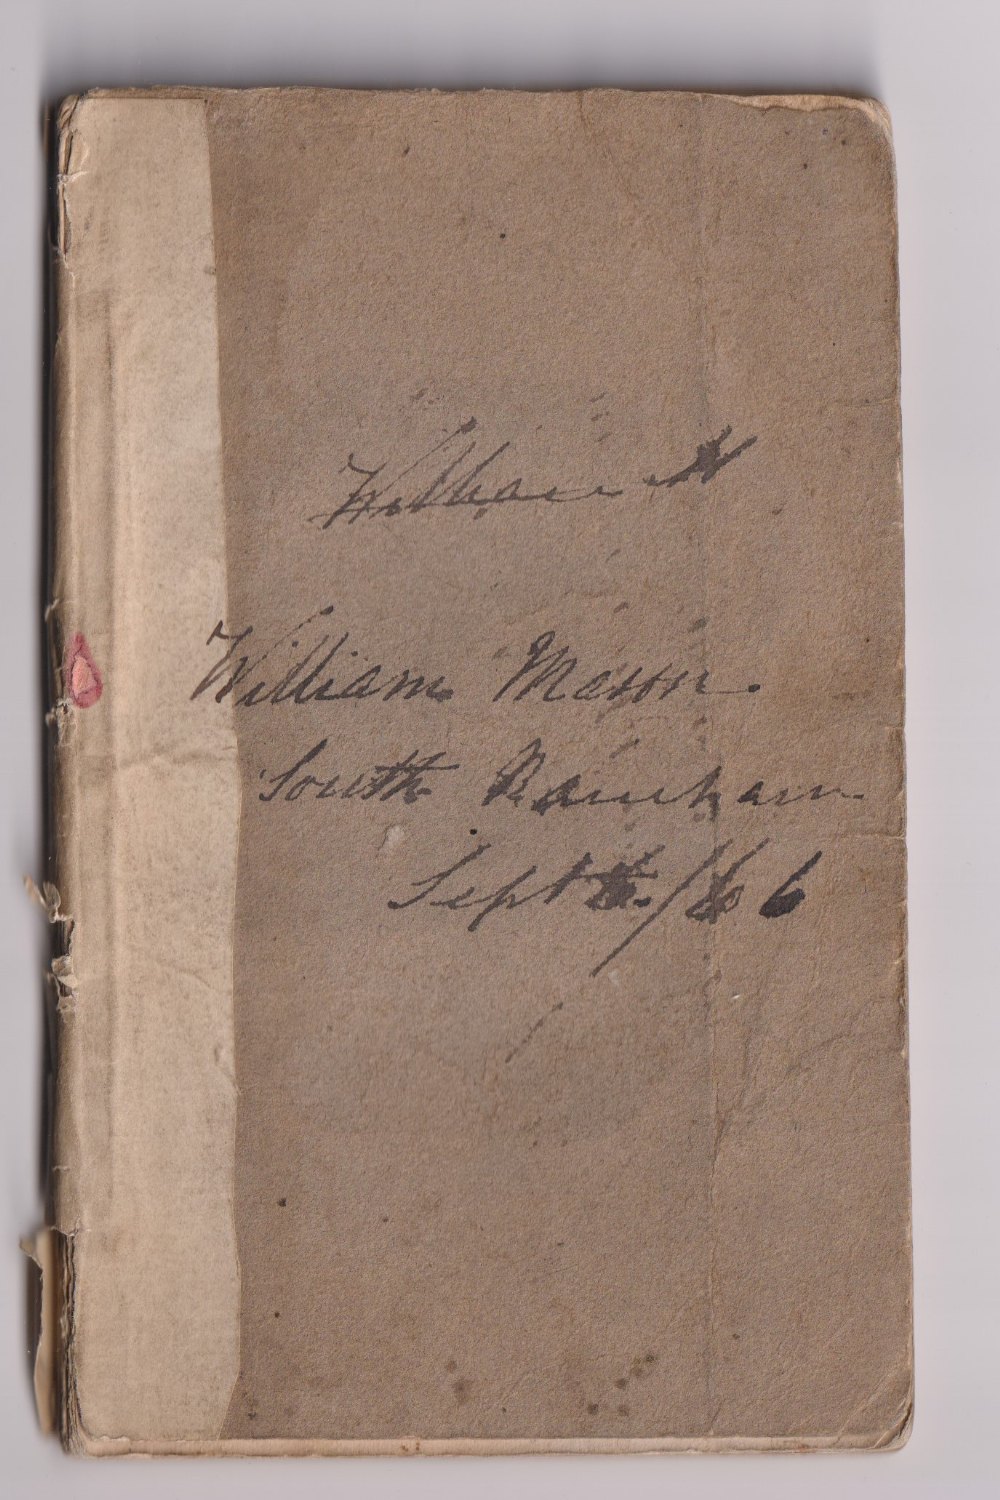 William
William Mason.
South Rainham
Sept /66